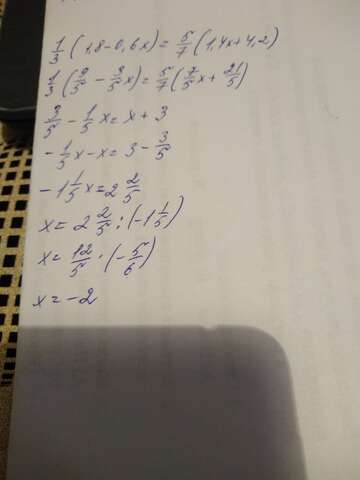 1/3 (1,8 - 0,6x) = 5/7 (1,4x + 4,2)
1/3 (9/5 - 3/5 x) = 5/7 (7/5 x + 21/5)
3/5 - 1/5 x = x + 3
- 1/5 x - x = 3 - 3/5
- 1 1/5 x = 2 2/5
x = 2 2/5 : (-1 1/5)
x = 12/5 · (- 5/6)
x = -2